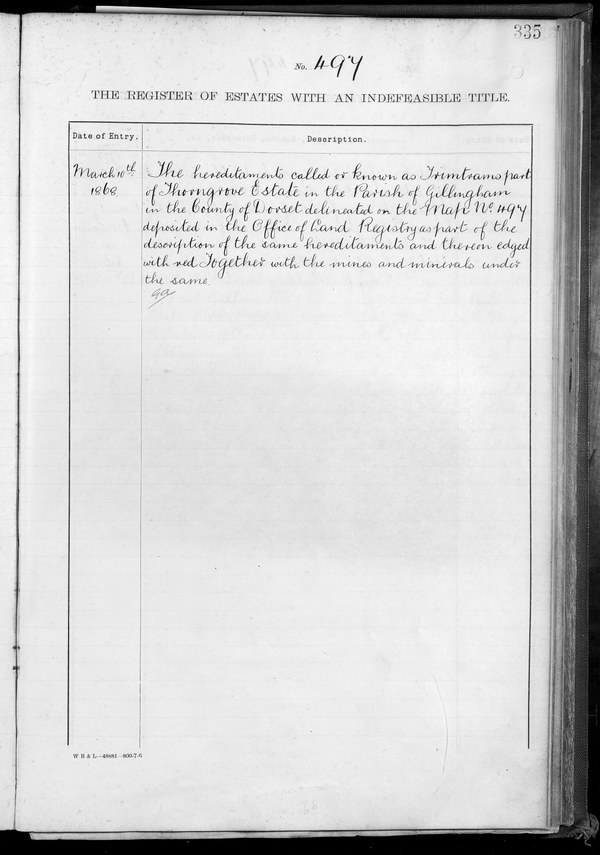 335
No. 497
THE REGISTER OF ESTATES WITH AN INDEFEASIBLE TITLE.
Date of Entry.
Description.
March 10th
1868
The hereditaments called or known as Trimtrams part
of Thorngrove Estate in the Parish of Gillingham
in the County of Dorset delineated on the Map No 497
deposited in the Office of Land Registry as part of the
description of the same hereditaments and thereon edged
with red Together with the mines and minerals under
the same
W B & L—48881—800-7-6